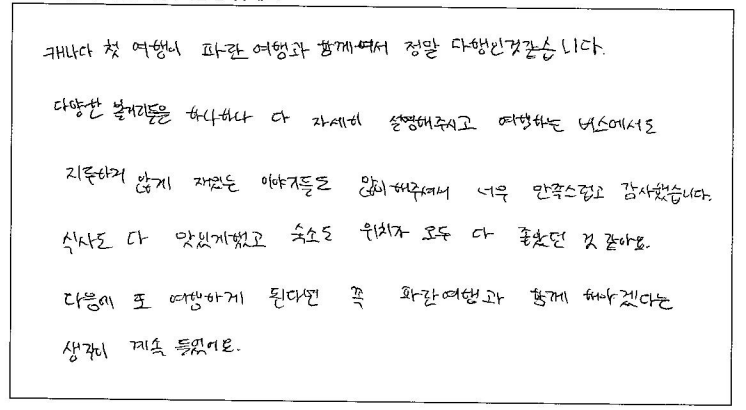 캐나다 첫 여행이 파란 여행과 함께여서 정말 다행인것같습니다.
다양한 볼거리들을 하나하나 다 자세히 설명해주시고 여행하는 버스에서도
지루하지 않게 재밌는 이야기들도 많이해주셔서 너무 만족스럽고 감사했습니다.
식사도 다 맛있게했고 숙소도 위치가 모두 다 좋았던 것 같아요.
다음에 또 여행하게 된다면 꼭 파란여행과 함께 해야겠다는
생각이 계속 들었어요.